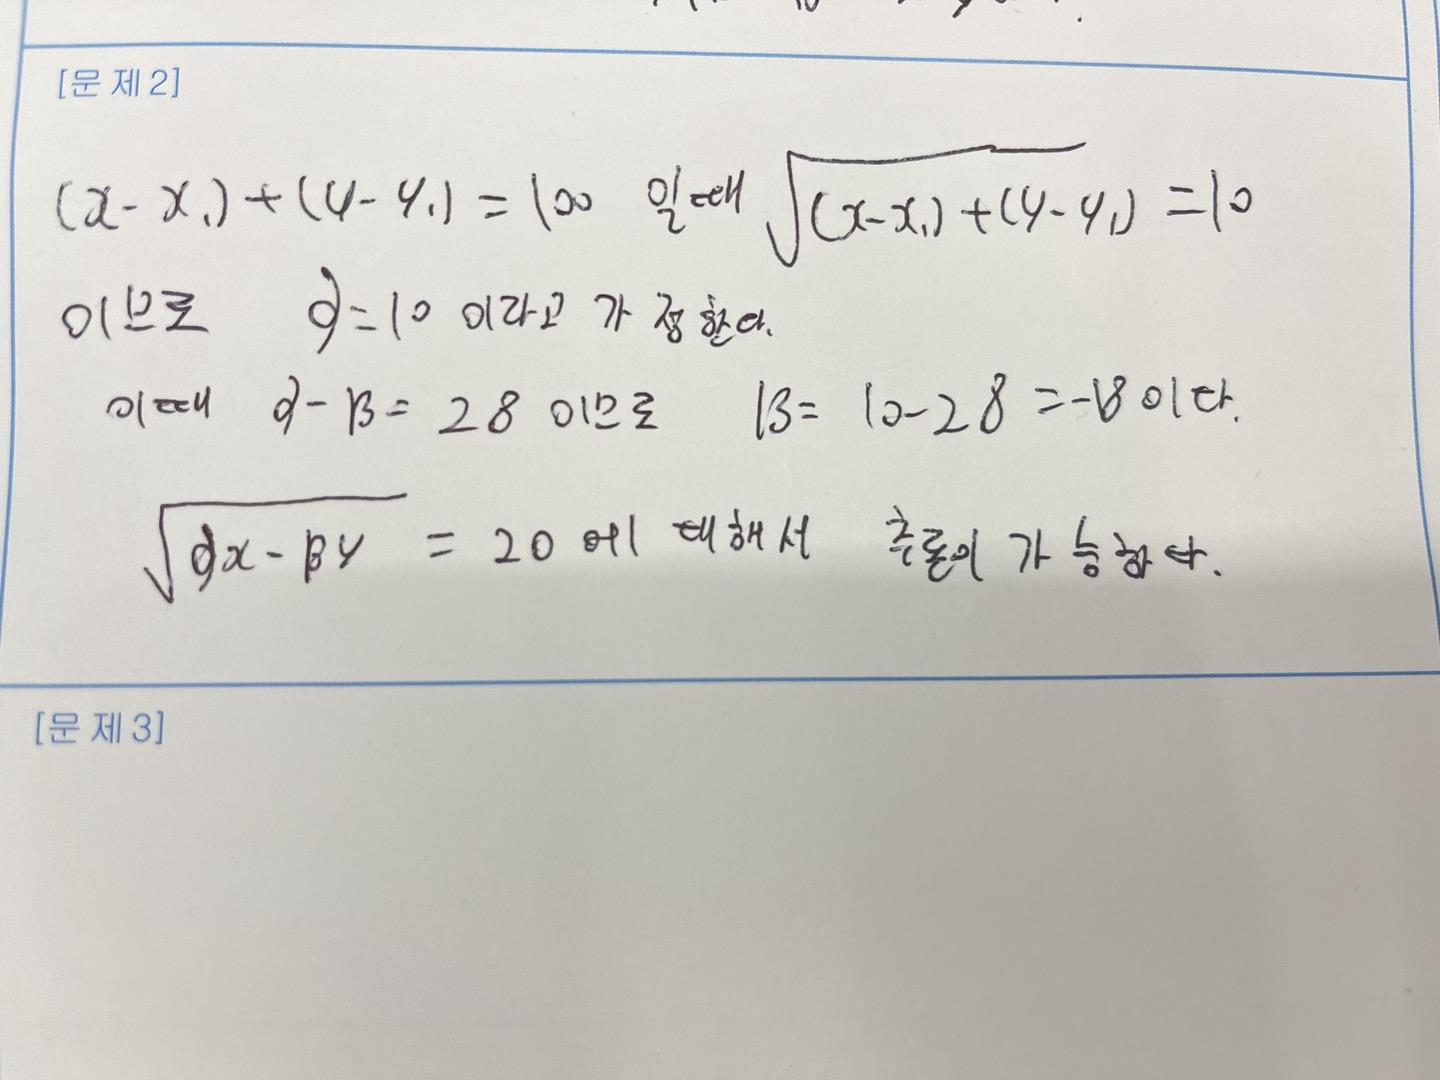 [문 제 2]
(x - x₁) + (y - y₁) = 100 일때 √(x-x₁) + (y-y₁) = 10
이므로 α = 10 이라고 가정한다.
이때 α - β = 28 이므로 β = 10 - 28 = -18 이다.
√αx - βy = 20 에 대해서 추론이 가능하다.
[문 제 3]